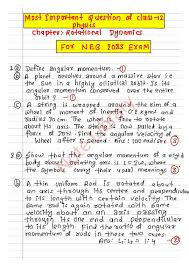 Most Important Question of class-12
Physics
Chapter: Rotational Dynamics
For NEB 2083 EXAM
1 a Define angular momentum.
b A planet revolves around a massive star i.e
the sun in a highly elliptical orbit. Is its
angular momentum conserved over the entire
orbit?
c A string is wrapped around the rim of a
wheel of moment of inertia 0.20 kgm² and
radius 20cm. The wheel is free to rotate
about its axis. The string is now pulled by a
force of 20N. Find the angular velocity of
wheel after 5 second.
2 a Show that the angular momentum of a rigid
body about
symbols carry their usual meanings
b A thin uniform Rod is rotated about
an axis through its center and perpendicular
to its length with certain velocity. The
same rod is again rotated with same
velocity about an axis passing
through its one end and perpendicular
to its length. Find the ratio of angular
momentum of rods in these two cases.